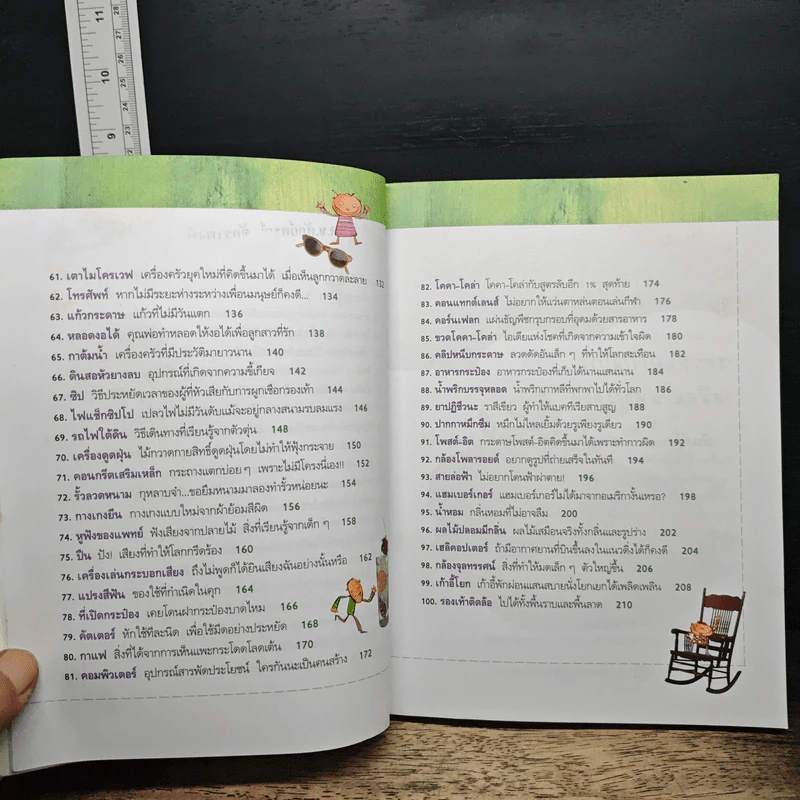 11
10
9
28
27
26
25
24
23
61. เตาไมโครเวฟ เครื่องครัวยุคใหม่ที่คิดขึ้นมาได้ เมื่อเห็นลูกกวาดละลาย 132
62. โทรศัพท์ หากไม่มีระยะห่างระหว่างเพื่อนมนุษย์ก็คงดี... 134
63. แก้วกระดาษ แก้วที่ไม่มีวันแตก 136
64. หลอดงอได้ คุณพ่อทำหลอดให้งอได้เพื่อลูกสาวที่รัก 138
65. กาต้มน้ำ เครื่องครัวที่มีประวัติมายาวนาน 140
66. ดินสอหัวยางลบ อุปกรณ์ที่เกิดจากความขี้เกียจ 142
67. ซิป วิธีประหยัดเวลาของผู้ที่หัวเสียกับการผูกเชือกรองเท้า 144
68. ไฟแช็กซิปโป เปลวไฟไม่มีวันดับแม้จะอยู่กลางสนามรบลมแรง 146
69. รถไฟใต้ดิน วิธีเดินทางที่เรียนรู้จากตัวตุ่น 148
70. เครื่องดูดฝุ่น ไม้กวาดกายสิทธิ์ดูดฝุ่นโดยไม่ทำให้ฟุ้งกระจาย 150
71. คอนกรีตเสริมเหล็ก กระถางแตกบ่อยๆ เพราะไม่มีโครงนี่เอง!! 152
72. รั้วลวดหนาม กุหลาบจ๋า...ขอยืมหนามมาลองทำรั้วหน่อยนะ 154
73. กางเกงยีน กางเกงแบบใหม่จากผ้าย้อมสีผิด 156
74. หูฟังของแพทย์ ฟังเสียงจากปลายไม้ สิ่งที่เรียนรู้จากเด็กๆ 158
75. ปืน ปัง! เสียงที่ทำให้โลกกรีดร้อง 160
76. เครื่องเล่นกระบอกเสียง ถึงไม่พูดก็ได้ยินเสียงฉันอย่างนั้นหรือ 162
77. แปรงสีฟัน ของใช้ที่กำเนิดในคุก 164
78. ที่เปิดกระป๋อง เคยโดนฝากระป๋องบาดไหม 166
79. คัตเตอร์ หักใช้ทีละนิด เพื่อใช้มีดอย่างประหยัด 168
80. กาแฟ สิ่งที่ได้จากการเห็นแพะกระโดดโลดเต้น 170
81. คอมพิวเตอร์ อุปกรณ์สารพัดประโยชน์ ใครกันนะเป็นคนสร้าง 172
82. โคคา-โคล่า โคคา-โคล่ากับสูตรลับอีก 1% สุดท้าย 174
83. คอนแทกต์เลนส์ ไม่อยากให้แว่นตาหล่นตอนเล่นกีฬา 176
84. คอร์นเฟลก แผ่นธัญพืชกรุบกรอบที่อุดมด้วยสารอาหาร 178
85. ขวดโคคา-โคล่า ไอเดียแห่งโชคที่เกิดจากความเข้าใจผิด 180
86. คลิปหนีบกระดาษ ลวดดัดอันเล็กๆ ที่ทำให้โลกสะเทือน 182
87. อาหารกระป๋อง อาหารกระป๋องที่เก็บได้นานแสนนาน 184
88. น้ำพริกบรรจุหลอด น้ำพริกเกาหลีที่พกพาไปได้ทั่วโลก 186
89. ยาปฏิชีวนะ ราสีเขียว ผู้ทำให้แบคทีเรียสาบสูญ 188
90. ปากกาหมึกซึม หมึกไม่ไหลเยิ้มด้วยรูเพียงรูเดียว 190
91. โพสต์-อิต กระดาษโพสต์-อิตคิดขึ้นมาได้เพราะทำกาวผิด 192
92. กล้องโพลารอยด์ อยากดูรูปที่ถ่ายเสร็จในทันที 194
93. สายล่อฟ้า ไม่อยากโดนฟ้าผ่าตาย! 196
94. แฮมเบอร์เกอร์ แฮมเบอร์เกอร์ไม่ได้มาจากอเมริกางั้นเหรอ? 198
95. น้ำหอม กลิ่นหอมที่ไม่อาจลืม 200
96. ผลไม้ปลอมมีกลิ่น ผลไม้เสมือนจริงทั้งกลิ่นและรูปร่าง 202
97. เฮลิคอปเตอร์ ถ้ามีอากาศยานที่บินขึ้นลงในแนวดิ่งได้ก็คงดี 204
98. กล้องจุลทรรศน์ สิ่งที่ทำให้มดเล็กๆ ตัวใหญ่ขึ้น 206
99. เก้าอี้โยก เก้าอี้พักผ่อนแสนสบายนั่งโยกเยกได้เพลิดเพลิน 208
100. รองเท้าติดล้อ ไปได้ทั้งพื้นราบและพื้นลาด 210